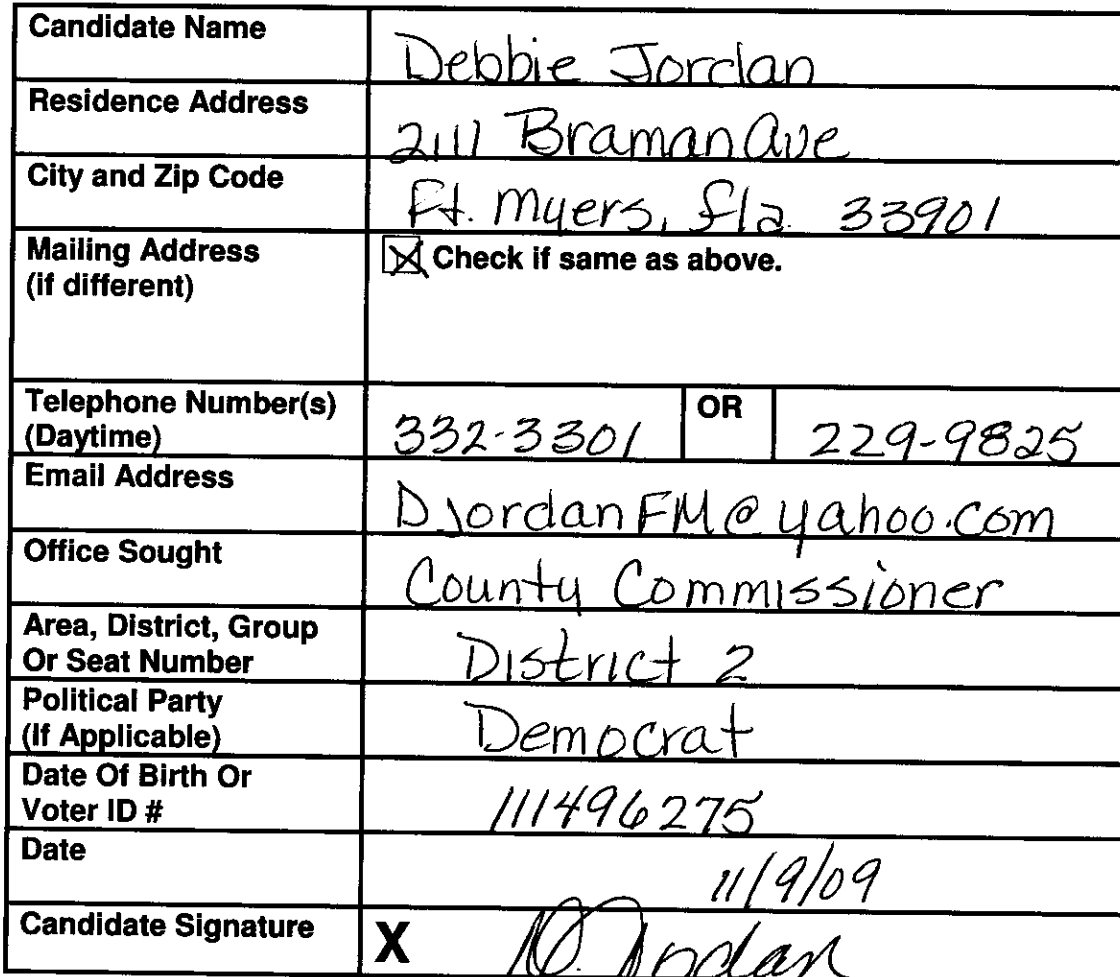 Candidate Name Debbie Jordan
Residence Address 2111 Braman Ave
City and Zip Code Ft. Myers, Fla. 33901
Mailing Address ☒ Check if same as above.
(if different)
Telephone Number(s) OR
(Daytime) 332-3301 229-9825
Email Address DJordanFM@yahoo.com
Office Sought County Commissioner
Area, District, Group
Or Seat Number District 2
Political Party
(If Applicable) Democrat
Date Of Birth Or
Voter ID # 111496275
Date 11/9/09
Candidate Signature X D. Jordan